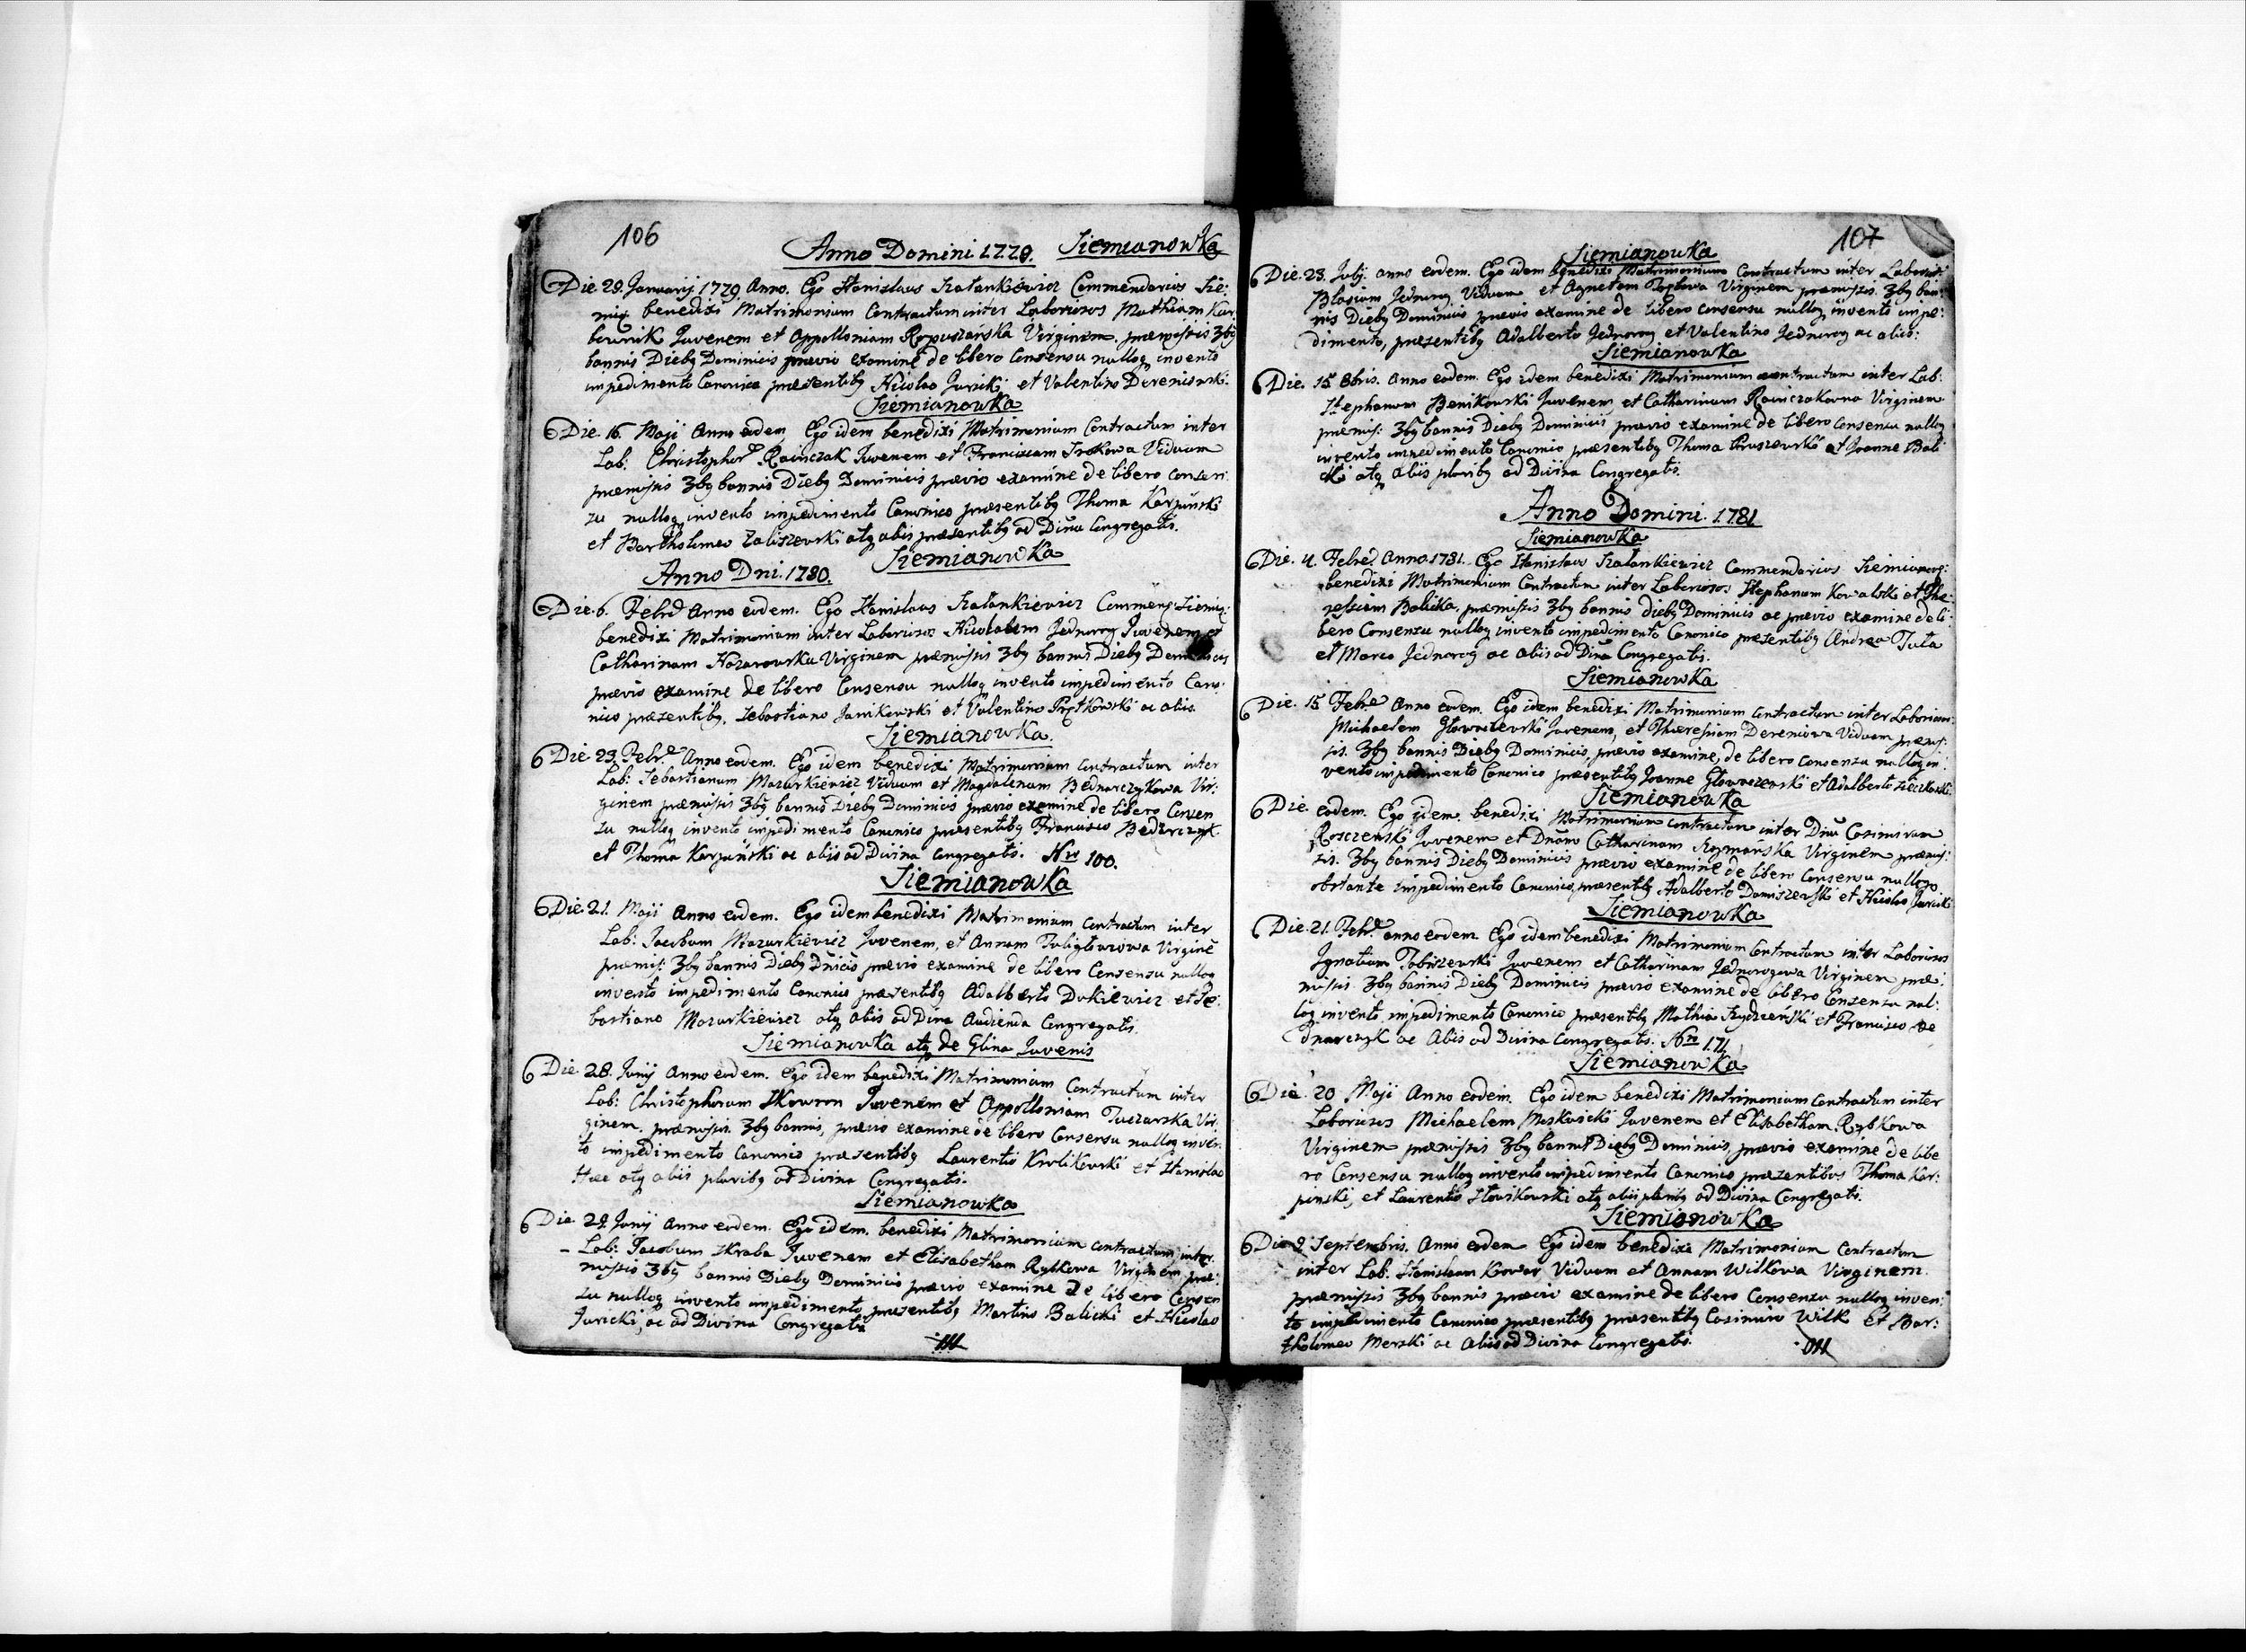 106
Anno Domini 1779. Siemianowka
Die 29. Januarij 1779 Anno. Ego Stanislaus Szatankiewicz Commendarius Sie:
mig benedixi Matrimonium Contractum inter Laboriosos Mathiam Kar
bewnik Juvenem et Appolloniam Virginem. præmissis 3bg
bannis Dieby Dominicis prævio examine de libero Consensu nulloq invento
impedimento Canonico præsentiby Nicolao Juricki et Valentino Dereniowski.
Siemianowka
Die 16. Maji Anno eodem Ego idem benedixi Matrimonium Contractum inter
Lab: Christophor Rainczak Juvenem et Franciscam Srokowa Viduam
præmissis 3by bannis Dieby Dominicis prævio examine de libero consen
su nulloq invento impedimento Canonico præsentiby Thoma Karpinski
et Bartholomeo Zaliszewski atq aliis præsentiby ad Dina Congregatis.
Siemianowka
Anno Dni. 1780.
Die 6. Febr Anno eodem. Ego Stanislaus Szatankiewicz Commeng: Siemig:
benedixi Matrimonium inter Laboriosos Nicolaum Jednorog Juvenem et
Catharinam Nozarowska Virginem præmissis 3by bannis Dieby Dominicis
prævio examine de libero Consensu nulloq invento impedimento Cano
nico præsentiby, Sebastiano Janikowski et Valentino ac aliis.
Siemianowka.
Die 23. Febr. Anno eodem. Ego idem benedixi Matrimonium Contractum inter
Lab: Sebastianum Mazurkiewicz Viduum et Magdalenam Bednarczykowa Vir:
ginem præmissis 3by bannis Dieby Dominicis prævio examine de libero Consen
su nulloq invento impedimento Canonico præsentiby Francisco
et Thoma Karpinski ac aliis ad Divina Congregatis. Nro 100.
Siemianowka
Die 21. Maji Anno eodem. Ego idem benedixi Matrimonium Contractum inter
Lab: Jacobum Mazurkiewicz Juvenem, et Annam Tuligłowiowa Virginē
præmis: 3by bannis Dieby Dnicis prævio examine de libero Consensu nulloq
invento impedimento Canonico præsentiby Adalberto Dukiewicz et Se:
bastiano Mazurkiewicz atq aliis ad Dina Audienda Congregatis.
Siemianowka atq de Glina Juvenis
Die 28. Junij Anno eodem. Ego idem benedixi Matrimonium Contractum inter
Lab: Christophorum Skowron Juvenem et Appolloniam Tuczarska Vir:
ginem. præmissis. 3by bannis, prævio examine de libero Consensu nulloq inven
to impedimento Canonico præsentiby Laurentio Krolikowski et Stanislao
atq aliis pluriby ad Divina Congregatis.
Siemianowka
Die 29. Junij Anno eodem. Ego idem. benedixi Matrimonium contractum inter
Lab: Jacobum Skraba Juvenem et Elisabetham Rybkowa Virginem præ:
missis 3by bannis Dieby Dominicis prævio examine de libero Consen
su nulloq invento impedimento præsentiby Martino Balicki et Nicolao
Juricki, ac ad Divina Congregatis
107
Siemianowka
Die. 23. Julij. anno eodem. Ego idem benedixi Matrimonium Contractum inter Laborios:
Blasium Jednorog Viduum et Agnetem Virginem præmissis. 3by ban:
nis Dieby Dominicis prævio examine de libero consensu nulloq invento impe:
dimento, præsentiby Adalberto Jednorog et Valentino Jednorog ac aliis:
Siemianowka
Die. 15 8bris. Anno eodem. Ego idem benedixi Matrimonium contractum inter Lab:
Stephanum Benikowski Juvenem et Catharinam Rainczakowna Virginem
præmis: 3by bannis Dieby Dominicis prævio examine de libero Consensu nulloq
invento impedimento Canonico præsentiby Thoma Pruszewski et Joanne Bali
cki atq aliis pluriby ad Divina Congregatis.
Anno Domini. 1781
Siemianowka
Die. 4. Febr. Anno 1781. Ego Stanislaus Szatankiewicz Commendarius Siemianog:
benedixi Matrimonium Contractum inter Laboriosos Stephanum Kowalski et The
ressiam Balicka, præmissis 3by bannis dieby Dominicis ac prævio examine de li:
bero Consensu nulloq invento impedimento Canonico præsentiby Andrea Tuta
et Marco Jednorog ac aliis ad Dina Congregatis.
Siemianowka
Die. 15 Febr Anno eodem. Ego idem benedixi Matrimonium Contractum inter Laborios:
Michaelem Juvenem, et Theressiam Dereniowa Viduam præmis:
sis. 3by bannis Dieby Dominicis, prævio examine, de libero Consensu nulloq in:
vento impedimento Canonico præsentiby Joanne et Adalberto
Siemianowka
Die. eodem. Ego idem. benedixi Matrimonium contractum inter Dnū Casimirum
Juvenem et Dnām Catharinam Virginem præmis:
sis. 3by bannis Dieby Dominicis prævio examine de libero Consensu nulloq
obstante impedimento Canonico, præsentiby Adalberto Damiszewski et Nicolao Juricki
Siemianowka
Die. 21. Febr. anno eodem. Ego idem benedixi Matrimonium Contractum inter Laboriosos
Ignatium Tobiszewski Juvenem et Catharinam Jednorogowa Virginem præ:
missis. 3by bannis Dieby Dominicis prævio examine de libero Consensu nul:
loq invento impedimento Canonico præsentiby Mathia et Francisco Be
dnarczyk ac Aliis ad Divina Congregatis. Nro 171
Siemianowka
Die. 20 Maji Anno eodem. Ego idem benedixi Matrimonium Contractum inter
Laboriosos Michaelem Moskwicki Juvenem et Elisabetham Rybkowa
Virginem præmissis 3by bannis Dieby Dominicis, prævio examine de libe
ro Consensu nulloq invento impedimento Canonico præsentibus Thoma Kar:
pinski, et Laurentio Słowikowski atq aliis pluriby ad Divina Congregatis.
Siemianowka
Die 9. Septembris. Anno eodem Ego idem benedixi Matrimonium Contractum
inter Lab. Stanislaum Krowar Viduum et Annam Wilkowa Virginem.
præmissis 3by bannis prævio examine de libero Consensu nulloq inven:
to impedimento Canonico præsentiby præsentiby Casimiro Wilk et Bar:
tholomeo Merski ac aliis ad Divina Congregatis.